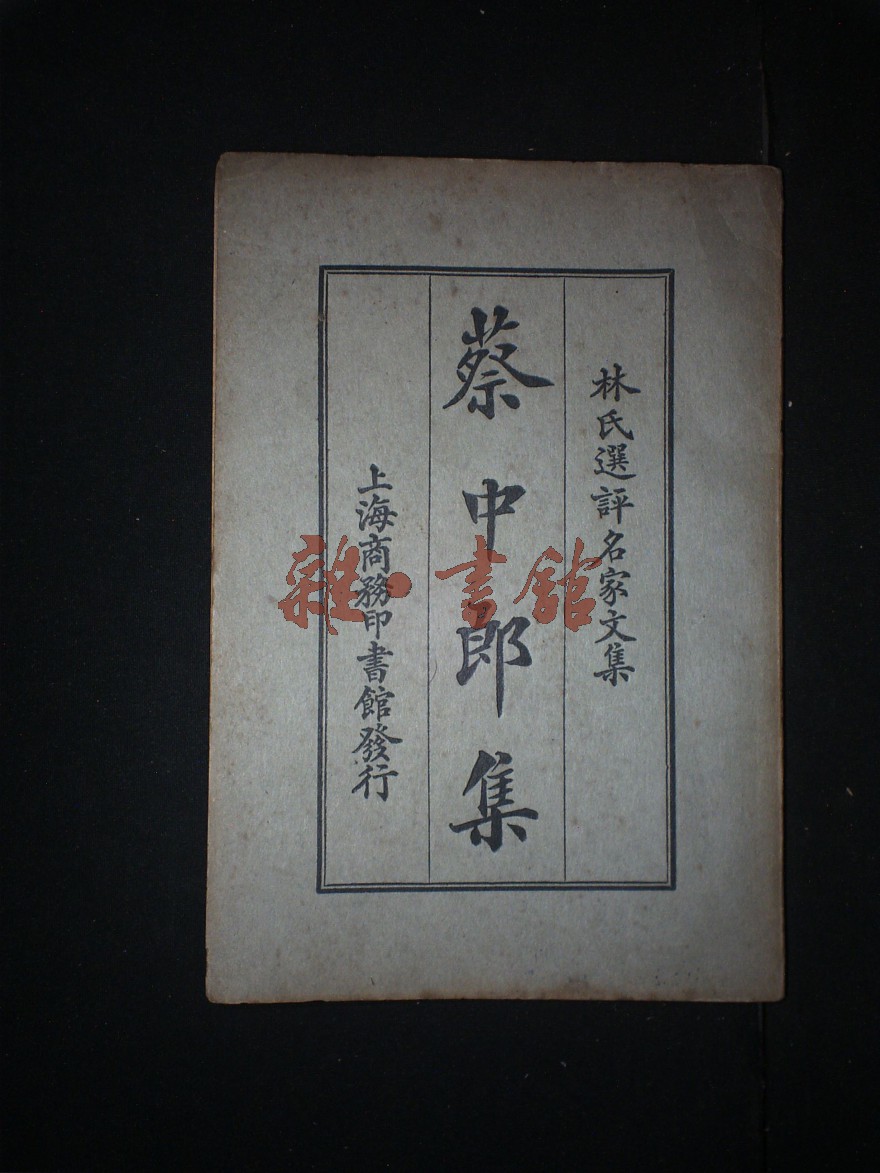 林氏選評名家文集
蔡中郎集
上海商務印書館發行
雜·書館